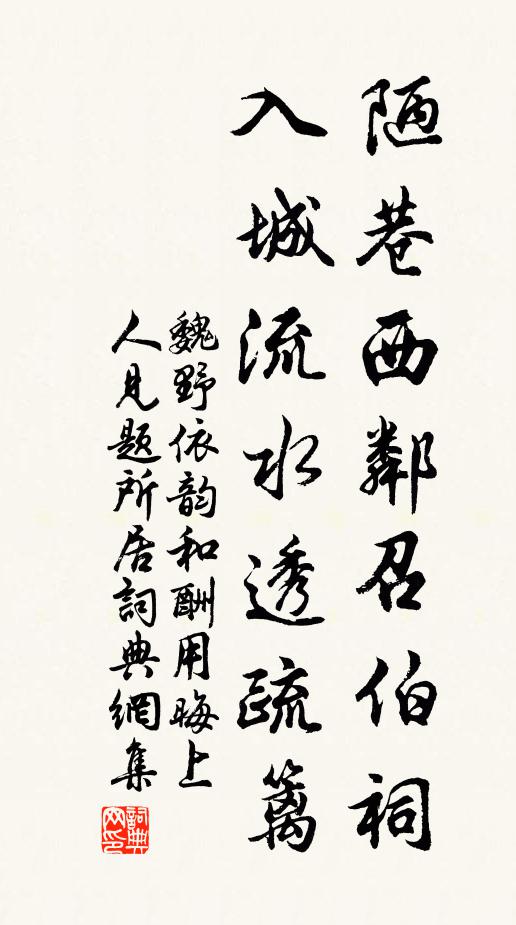 陋巷西鄰召伯祠
入城流水透疏篱
魏野依韵和酬用晦上
人見题所居詞典網集
詞典网印